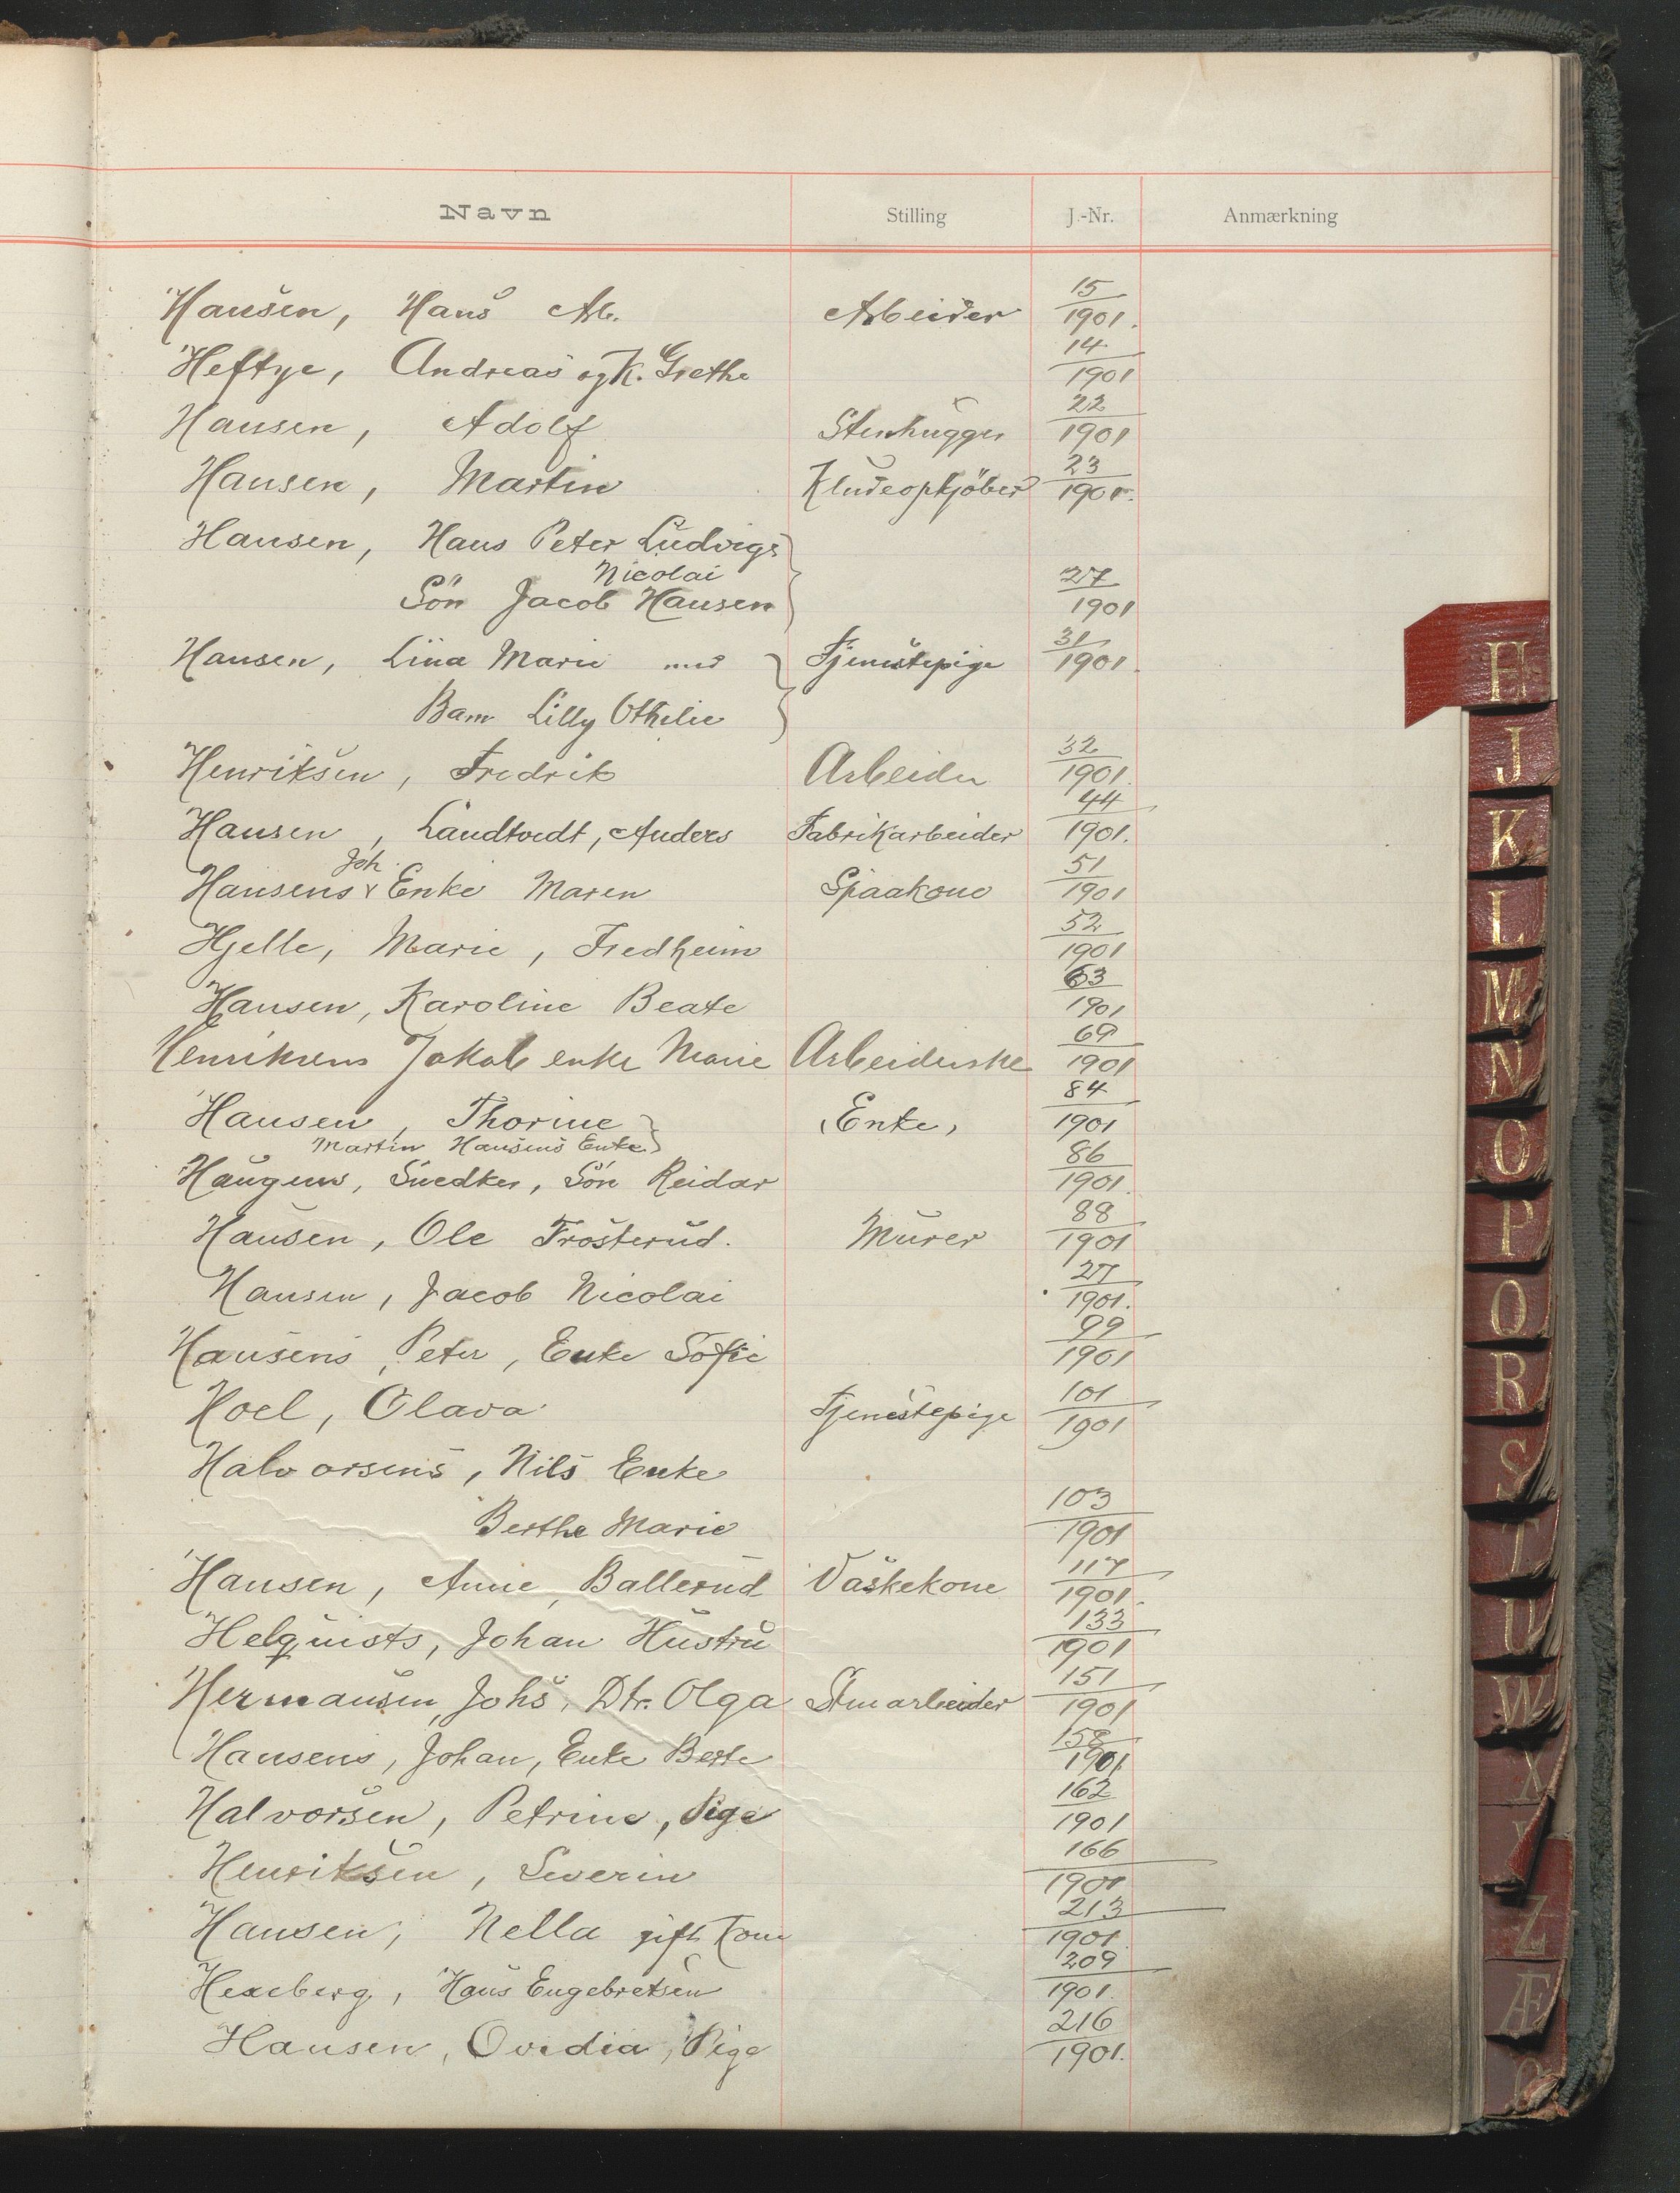 Navn Stilling J.-Nr. Anmærkning
Hansen, Hans Ab. Arbeider 15/1901.
Heftye, Andreas og K. Grethe 14/1901
Hansen, Adolf Stenhugger 22/1901
Hansen, Martin Kludeopkjöber 23/1901.
Hansen, Hans Peter Ludvigs
Nicolai
Sön Jacob Hansen 27/1901
Hansen, Lina Marie med Tjenestepige 31/1901.
Barn Lilly Othelie
Henriksen, Fredrik Arbeider 32/1901.
Hansen, Landtvedt, Anders Fabrikarbeider 44/1901.
Joh.
Hansens Enke Maren Spaakone 51/1901
Hjelle, Marie, Fredheim 52/1901
Hansen, Karoline Beate 63/1901
Henriksens Jakob enke Marie Arbeiderske 69/1901
Hansen, Thorine Enke, 84/1901
Martin Hansens Enke
Haugens, Snedker, Sön Reidar 86/1901.
Hansen, Ole Frosterud. Murer 88/1901
Hansen, Jacob Nicolai 27/1901.
Hansens, Peter, Enke Sofie 99/1901
Hoel, Olava Tjenestepige 101/1901
Halvorsens, Nils Enke
Berthe Marie 103/1901
Hansen, Anne, Ballerud Vaskekone 117/1901.
Helquists, Johan Hustru 133/1901
Hermansen, Johs. Dtr. Olga Stenarbeider 151/1901
Hansens, Johan, Enke Berte 158/1901
Halvorsen, Petrine, Pige 162/1901
Henriksen, Severin 166/1901
Hansen, Nella gift Kone 213/1901.
Hexeberg, Hans Engebretsen 209/1901.
Hansen, Ovidia, Pige 216/1901.
H
J
K
L
M
N
O
P
Q
R
S
T
U
W
X
Z
Æ